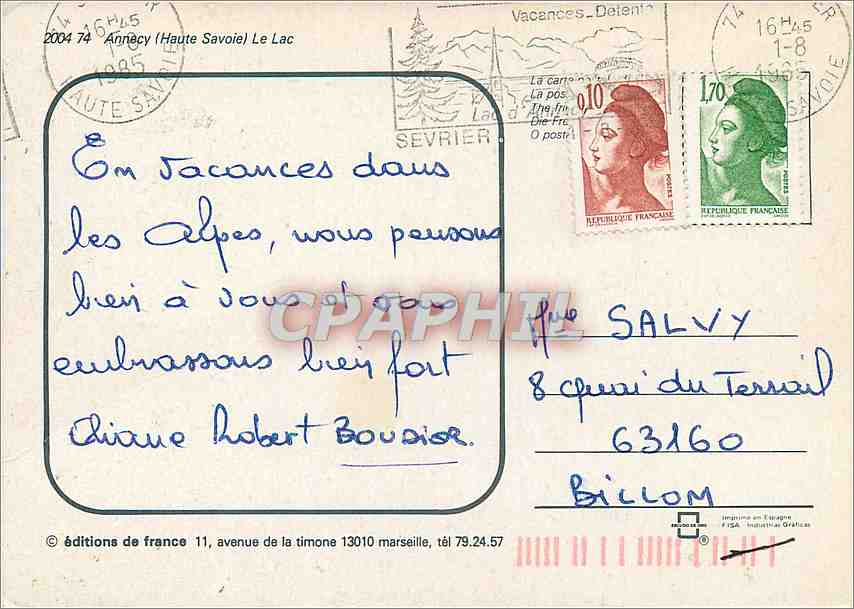 2004 74 Annecy (Haute Savoie) Le Lac
16H45
1-8
1985
HAUTE SAVOIE
Vacances_Detente
Lac d'Annecy
SEVRIER
La carte
La pos
The fri
Die Fre
O poste
0,10
POSTES
REPUBLIQUE FRANÇAISE
1,70
POSTES
REPUBLIQUE FRANÇAISE
74
16H45
1-8
1985
SAVOIE
En vacances dans
les Alpes, nous pensons
bien à vous et vous
embrassons bien fort
Robert
CPAPHIL
Mme SALVY
8 quai du Terrail
63160
BILLOM
Imprimé en Espagne
FISA - Industrias Gráficas
®
© éditions de france 11, avenue de la timone 13010 marseille, tél 79.24.57